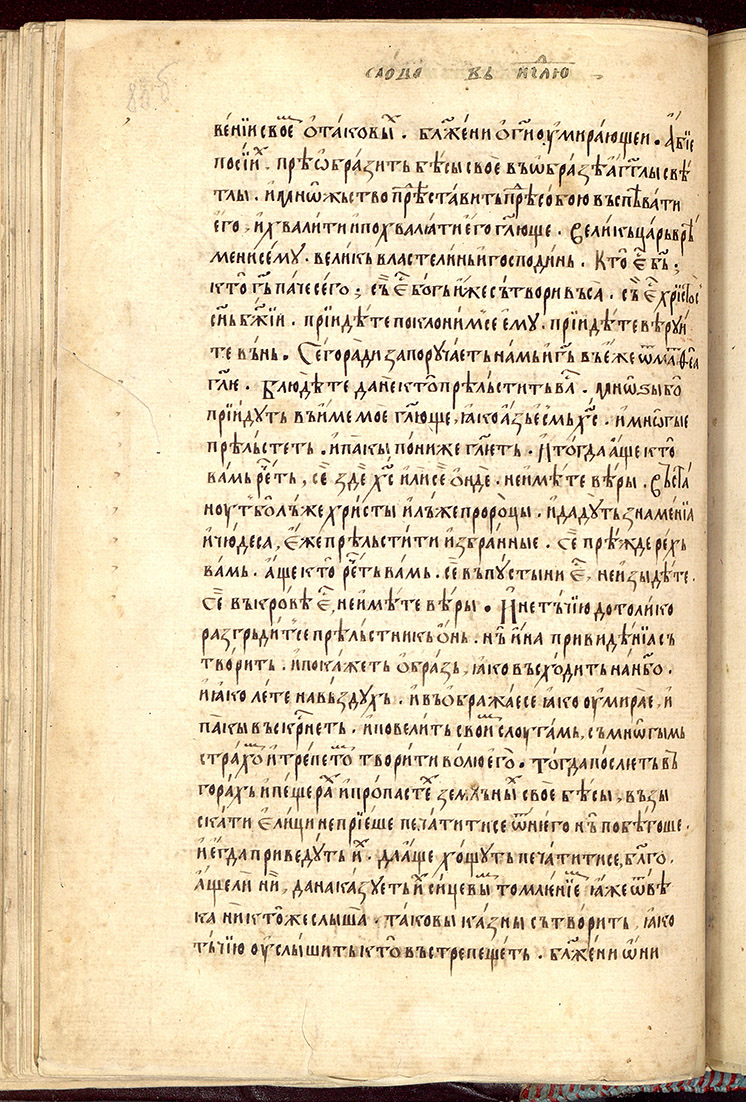 слово въ нⷣелю
ве́нїи свое҆ ѡ҆ таковы́хъ . бл҃же́ни о҆гн҃и о҆умира́ющеи . а҆́бїе
по си́ⷯ . прѣѡ҆брази́ть бѣ́сы свое въ ѡ҆́бразѣ а҆́гг҃лы свѣ́
тлы . и҆ мнѡ҆́жьство прѣ́ставить прѣ́ собою въспѣва́ти
е҆го̀ , и҆ хвали́ти и҆ похвалꙗ́ти е҆го̀ гл҃юще . вели́къ ца́рь врѣ́
мени се́мꙋ . вели́къ властели́нь и҆ господи́нь . кто̀ е҆́ бъ҃ ;
кто̀ гь҃ па́че се́го ; съ̀ е҆́ бо́гь и҆́же сътворѝ въса̀ . съ̀ е҆́ хрїсто́сь
сн҃ь бж҃їи . прїидѣ́те поклони́мⷭе е҆мꙋ̀ . прїидѣ́те вѣ́рꙋи
те въ нь . Се́го ра́ди запорꙋча́еть на́мь и҆ гь҃ въ е҆́же ѿ маⷮѳеа
гл҃ѥ . Блюдѣ́те да не кто̀ прѣльсти́ть ва́ⷭ . мнѡ́ѕы бо
прїи́дꙋть въ и҆́ме моѐ гл҃юще , ꙗ҆́ко а҆́зь е҆́смь х҃с . и҆ мнѡ́гые
прѣльсте́ть . и҆ па́кы пони́же гл҃еть . и҆ тогда̀ а҆́ще кто̀
ва́мь рⷱ҇е́ть , сѐ здѐ х҃с и҆лѝ сѐ о҆́нде . не и҆мѣ́те вѣ́ры . въста́
ноуⷮ бо лъ́же хрїсты и҆ лъ́же проро́цы . и҆ даду́ть зна́менїꙗ
и҆ чюде́са , е҆́же прѣльсти́ти и҆збра́нные . сѐ прѣ́жде ре́хь
ва́мь . а҆́ще кто̀ рⷱ҇е́ть ва́мь . сѐ въ пꙋсты́ни е҆́ , не и҆зыдѣ́те .
Сѐ въ кро́вѣ е҆́ , не и҆мѣ́те вѣ́ры . И҆ не тъ́чїю до толи́ко
разгръди́тсе прѣльстникь о҆́нь . нъ̀ и҆ и҆́на привидѣ́нїꙗ съ
тво́рить . и҆ пока́жеть о҆́бразь , ꙗ҆́ко въсхо́дить на нб҃о .
и҆ ꙗ҆́ко ле́те на въ́здꙋхь . и҆ въѡ҆бража́есе ꙗ҆́ко о҆умира́е , и҆
па́кы въскрⷭне́ть . и҆ повели́ть свои́ⷨ слоуга́мь , съ мнѡ́гымь
стра́хоⷨ и҆ тре́петоⷨ твори́ти во́лю е҆го̀ . тогда̀ после́ть въ
гора́хъ и҆ пеще́раⷯ и҆ про́пастеⷯ земльны́ⷯ свое бѣ́сы , възы
ска́ти е҆ли́ци не прїе́ше печа́титисе ѿ ни́его нъ̀ побѣ́гоше .
и҆ е҆гда̀ приведу́ть и҆́ⷯ . да а҆́ще хо́щꙋть печа́титисе , бл҃го .
а҆́ще ли нѝ , да нака́зꙋеть и҆́ⷯ си́цевыⷨ томлѥ́нїеⷨ ꙗ҆́же ѿ вѣ́
ка никто́же слы́ша . та́ковы ка́зны сътво́рить , ꙗ҆́ко
тъ́чїю о҆услы́шить кто̀ въстрепе́щеть . бл҃же́ни ѡ҆́ни